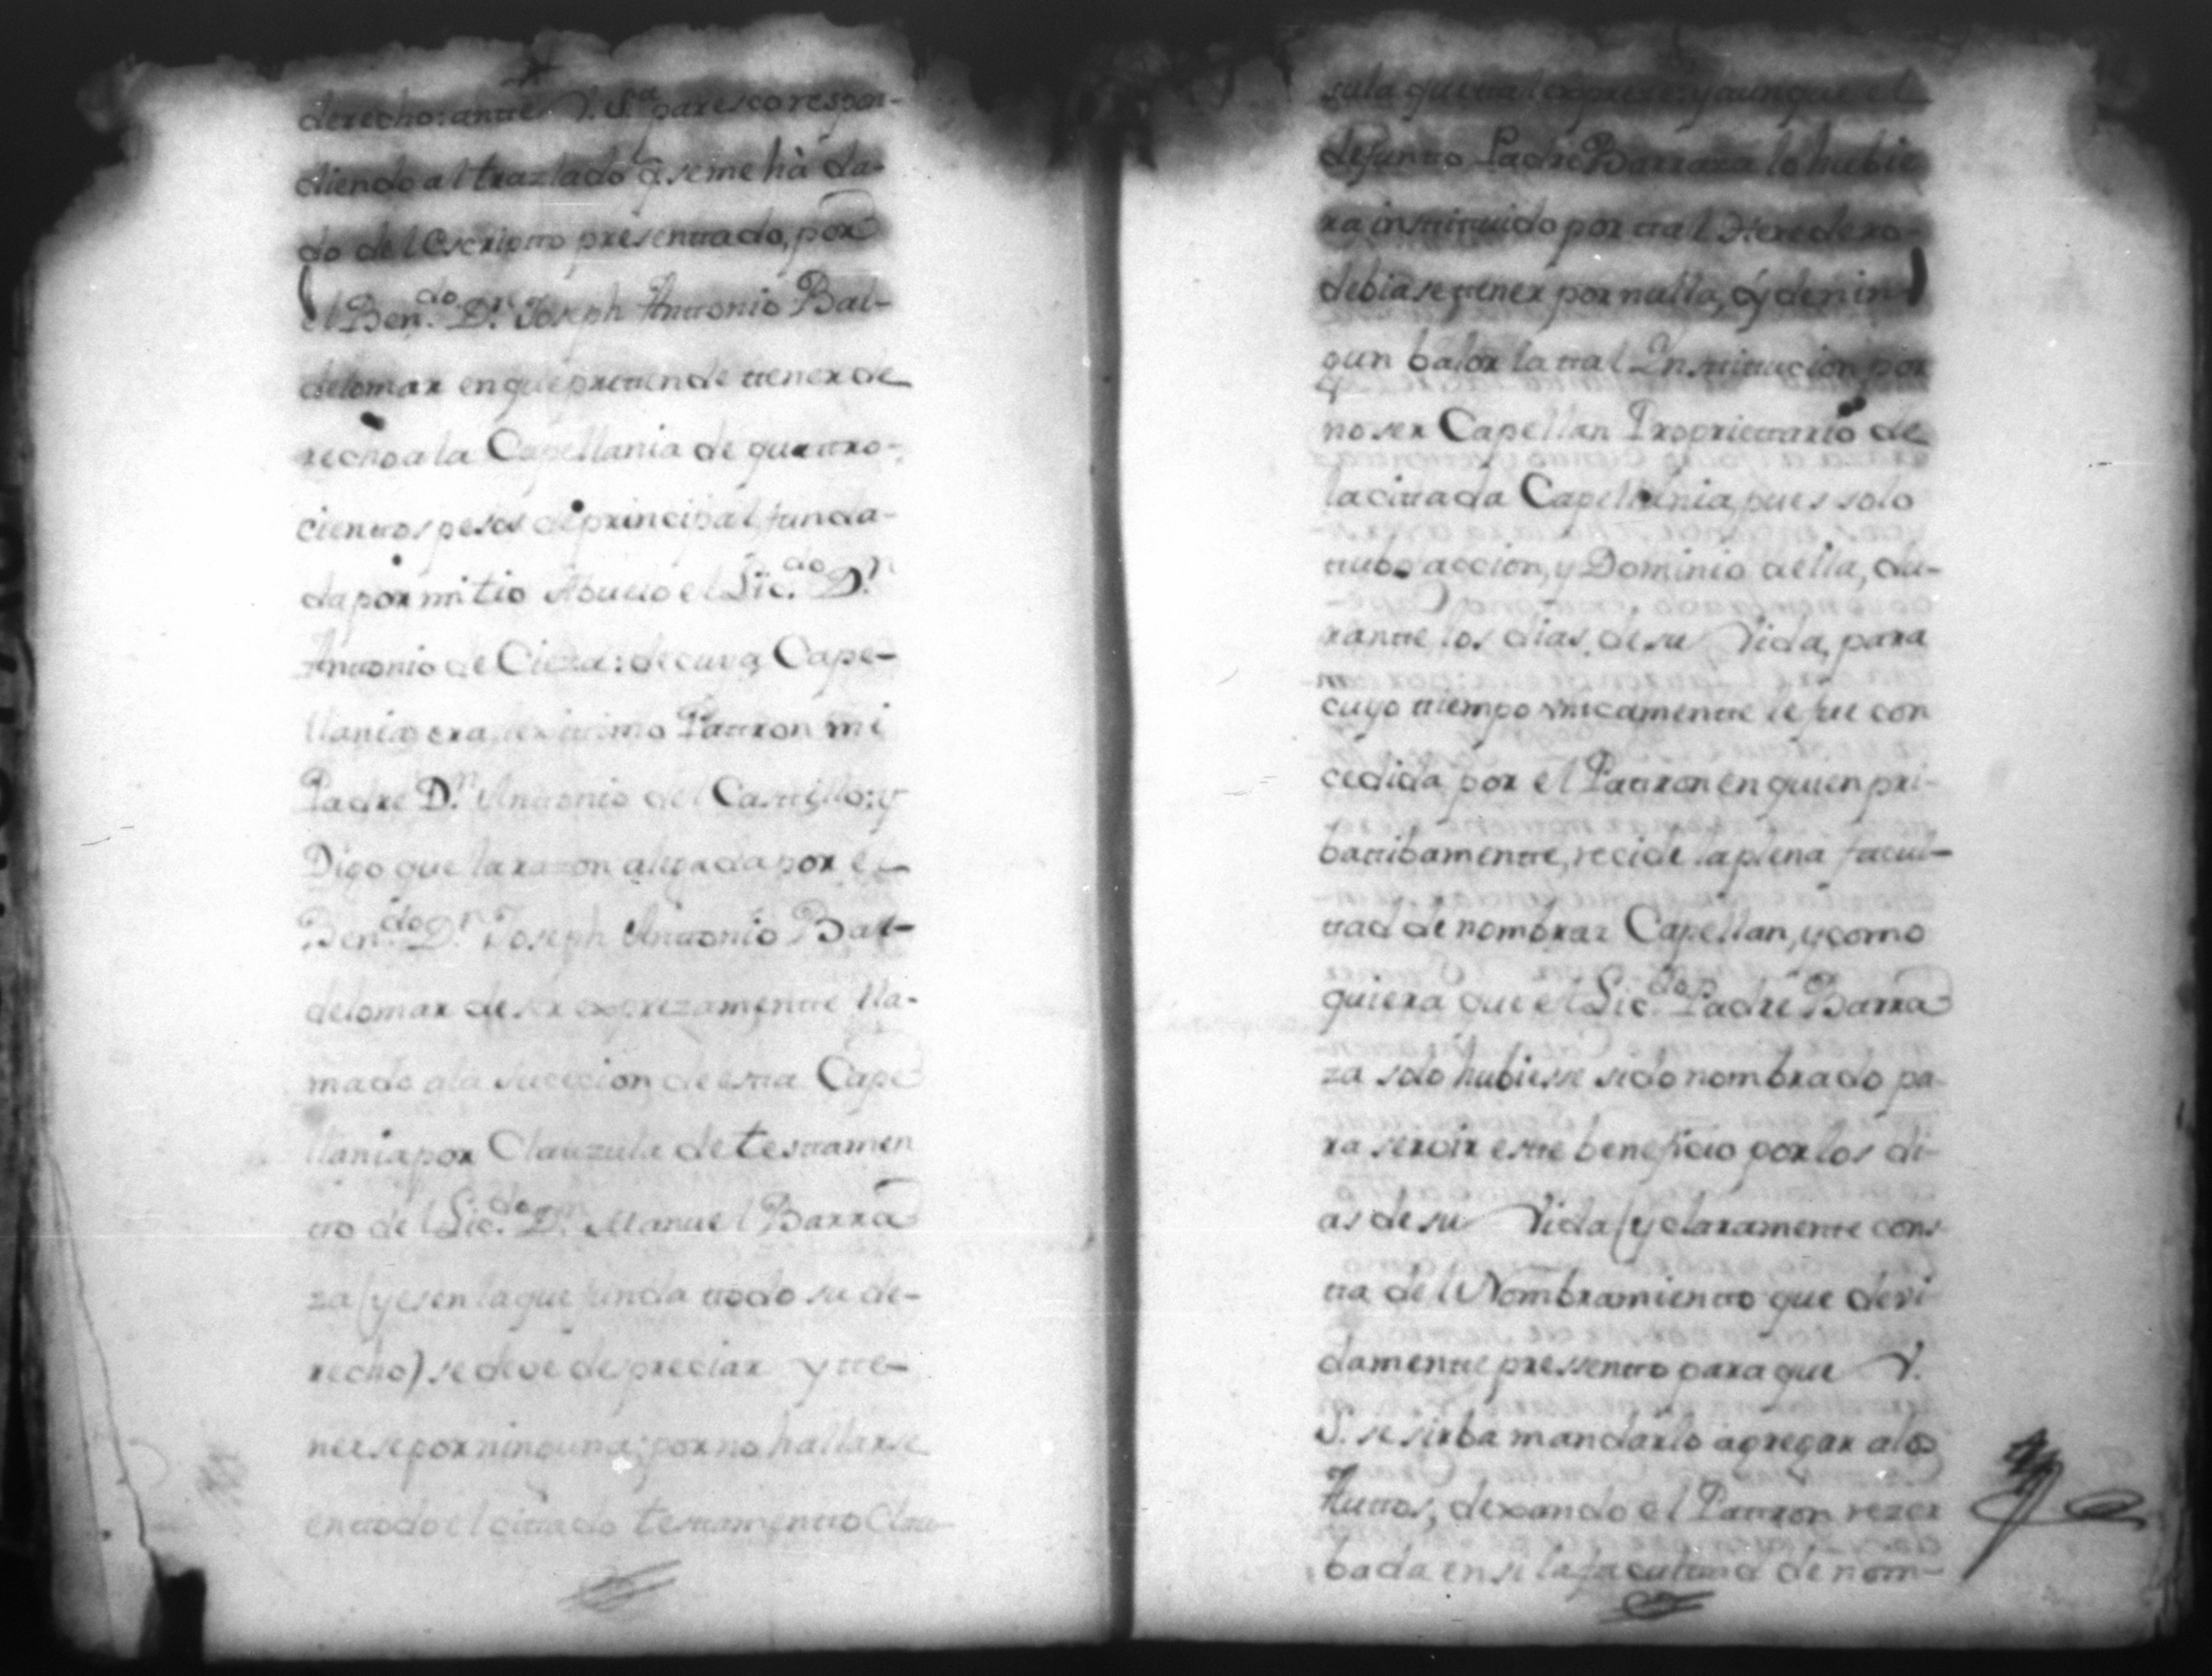 derecho: ante V. S.ª paresco respon-
diendo al trazlado q̃ se me hà da-
do del Escripto presentado, por
el Ben.do D.n Joseph Antonio Bal-
delomar en que pretende tener de
recho a la Capellania de quatro-
cientos pesos de principal, funda-
da por mi tio Abuelo el Lic.do D.n
Antonio de Cieza: de cuya Cape-
llania era lexitimo Patron mi
Padre D.n Antonio del Castillo: y
Digo que la razon alegada por el
Ben.do D.n Joseph Antonio Bal-
delomar de ser exprezamente lla-
mado a la sucecion de esta Cape
llania por Clauzula de testamen
to del Lic.do D.n Manuel Barra
za (y es en la que funda todo su de-
recho) se deve despreciar y te-
nerse por ninguna: por no hallarse
en todo el citado testamento Clau
sula que tal exprese: y aunque el
defunto Padre Barraza lo hubie
ra instituido por tal Heredero
debia se tener por nulla, y de nin
gun balor la tal Institucion por
no ser Capellan Proprietario de
la citada Capellania, pues solo
tubo accion, y Dominio a ella, du-
rante los dias de su Vida, para
cuyo tiempo vnicamente le fue con
cedida por el Patron en quien pri-
batibamente, recide la plena facul-
tad de nombrar Capellan, y como
quiera que el Lic.do Padre Barra
za solo hubiesse sido nombrado pa-
ra servir este beneficio por los di-
as de su Vida (y claramente cons
ta del Nombramiento que devi
damente pressento para que V.
S. se sirba mandarlo agregar a los
Autos, dexando el Patron rezer
bada en si la facultad de nom-